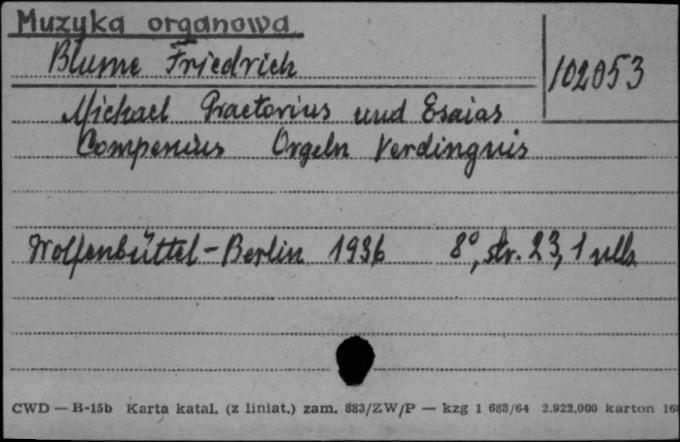 Muzyka organowa
Blume Friedrich
102053
Michael Praetorius und Esaias
Compenius Orgeln Verdingnis
Wolfenbüttel-Berlin 1936 8°, str. 23, 1 nlb
CWD — B-15b Karta katal. (z liniat.) zam. 883/ZW/P — kzg 1 683/64 2.922.000 karton 160